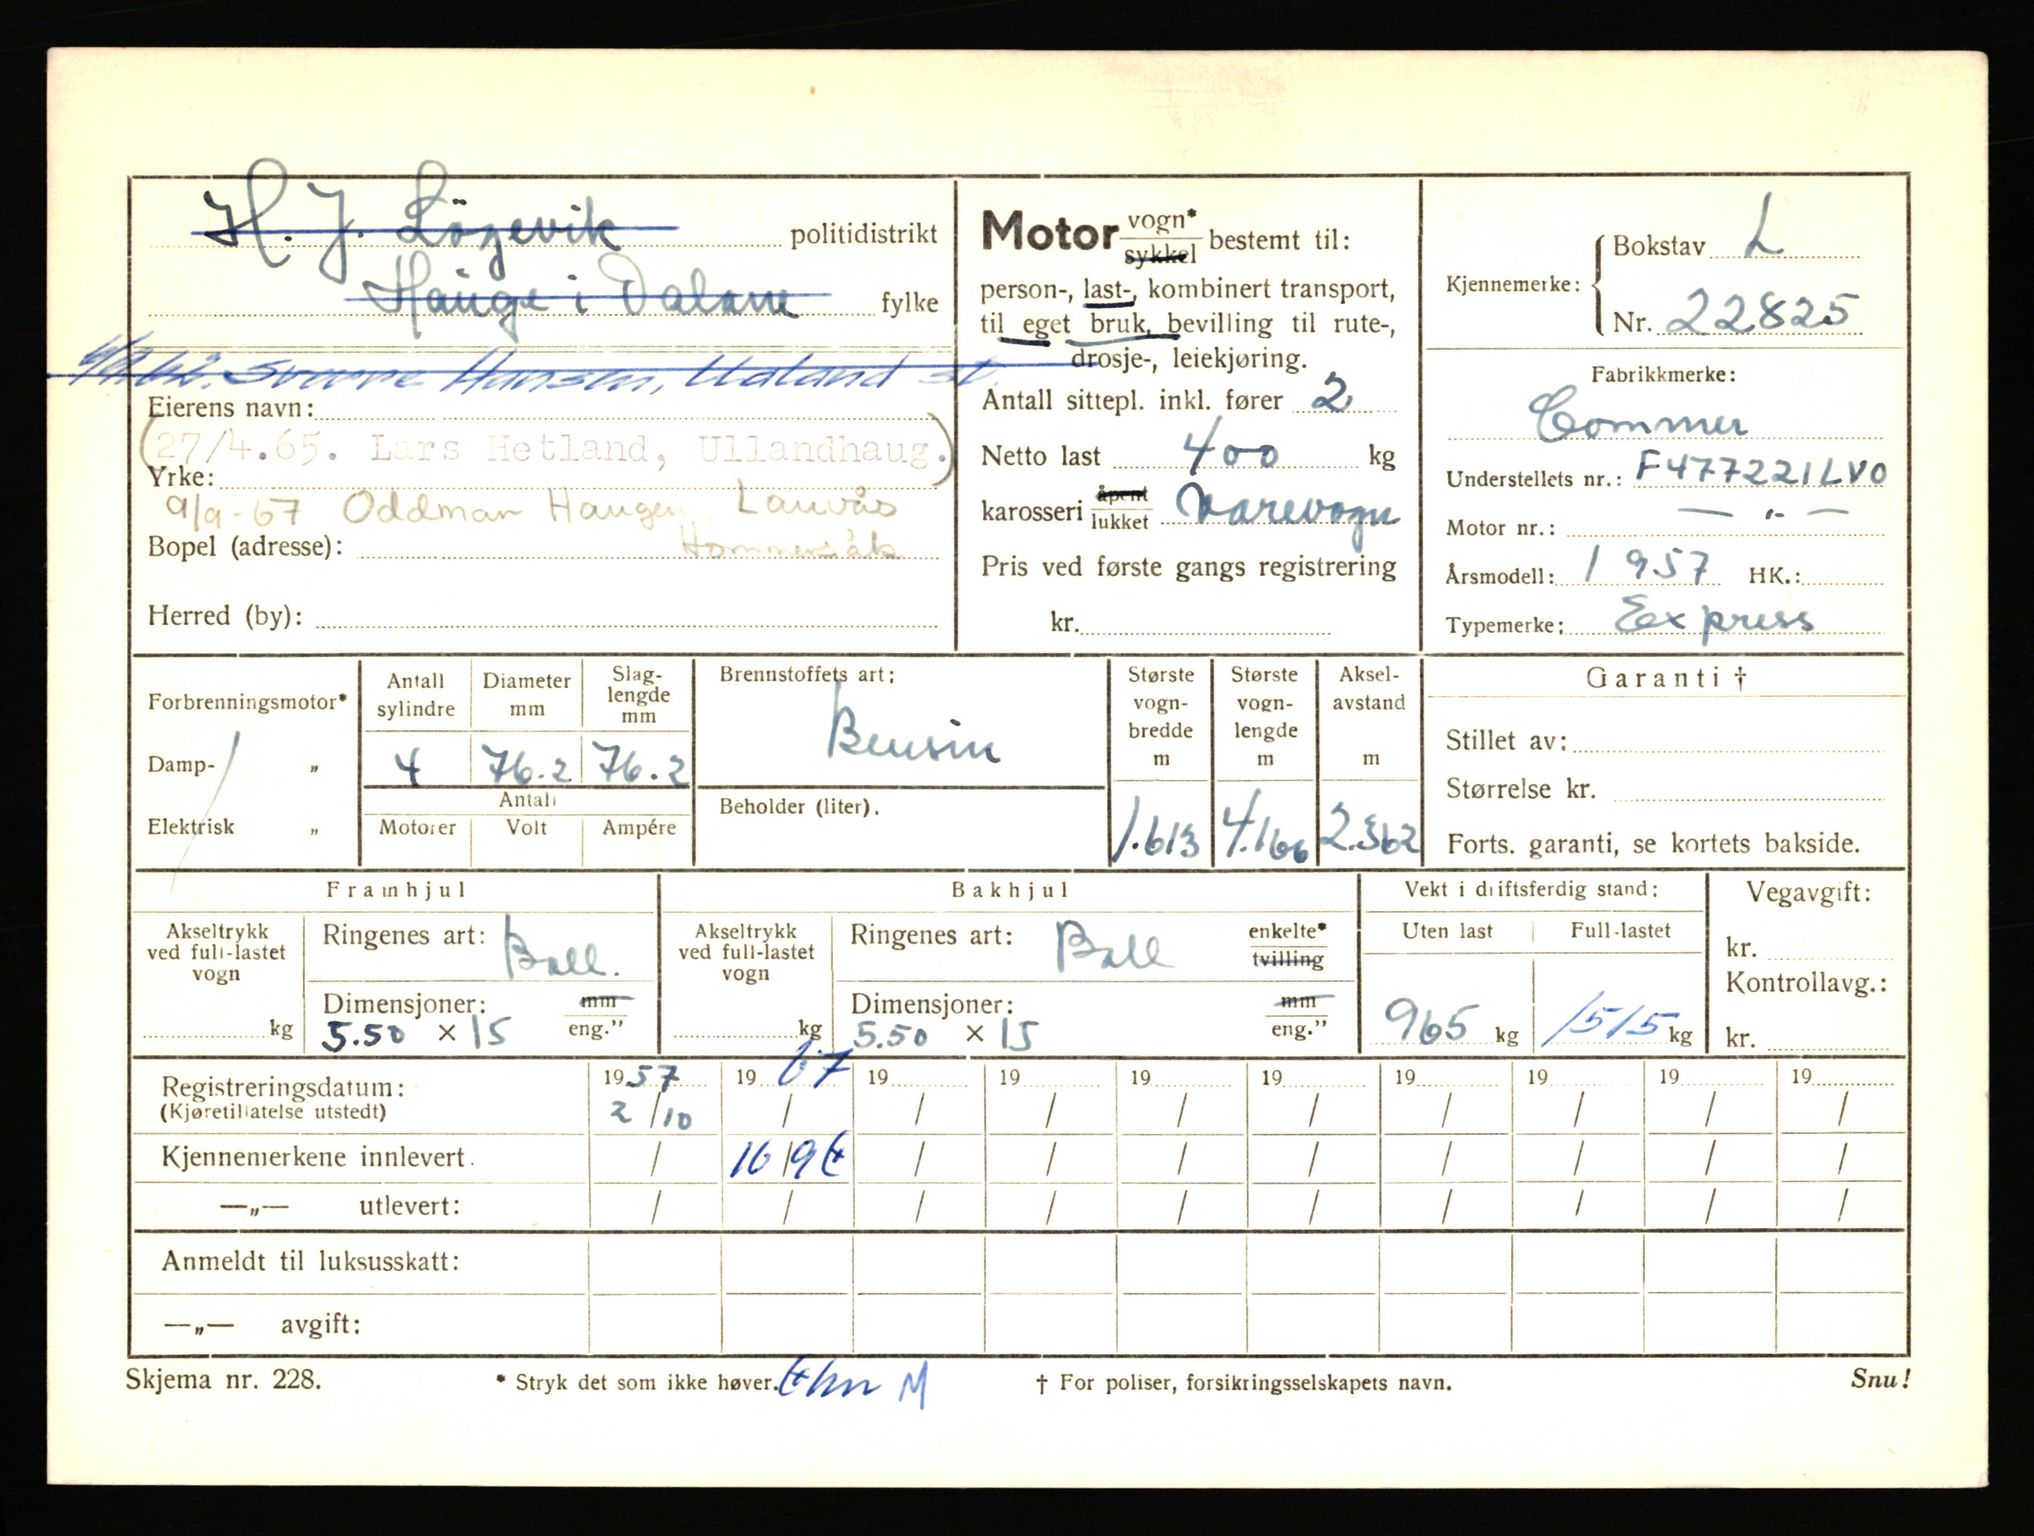 H. J. Lögevik politidistrikt
Hauge i Dalane fylke
Sverre Hansen, Ualand st.
Eierens navn:
(27/4.65. Lars Hetland, Ullandhaug.)
Yrke:
9/9-67 Oddmar Haugen, Lauvås
Bopel (adresse): Hommersåk
Herred (by):
Motor vogn* sykkel bestemt til:
person-, last-, kombinert transport,
til eget bruk, bevilling til rute-,
drosje-, leiekjøring.
Antall sittepl. inkl. fører 2
Netto last 400 kg
karosseri åpent lukket Varevogn
Pris ved første gangs registrering
kr.
Kjennemerke: Bokstav L
Nr. 22825
Fabrikkmerke:
Commer
Understellets nr.: F477221LVO
Motor nr.: — „ —
Årsmodell: 1957 HK.:
Typemerke: Express
Forbrenningsmotor*
Damp- „
Elektrisk „
Antall sylindre 4
Diameter mm 76.2
Slaglengde mm 76.2
Antall
Motorer Volt Ampére
Brennstoffets art:
Bensin
Beholder (liter).
Største vognbredde m 1.613
Største vognlengde m 4.166
Akselavstand m 2.362
Garanti †
Stillet av:
Størrelse kr.
Forts. garanti, se kortets bakside.
Framhjul
Akseltrykk ved full-lastet vogn kg
Ringenes art: Ball.
Dimensjoner: mm
5.50 × 15 eng."
Bakhjul
Akseltrykk ved full-lastet vogn kg
Ringenes art: Ball enkelte* tvilling
Dimensjoner: mm
5.50 × 15 eng."
Vekt i driftsferdig stand:
Uten last Full-lastet
965 kg 1515 kg
Vegavgift:
kr.
Kontrollavg.:
kr.
Registreringsdatum: 1957 1967 19 19 19 19 19 19 19 19
(Kjøretillatelse utstedt) 2/10 / / / / / / / / /
Kjennemerkene innlevert. / 16/9 / / / / / / / /
—„— utlevert: / / / / / / / / / /
Anmeldt til luksusskatt:
—„— avgift:
Skjema nr. 228. * Stryk det som ikke høver. M † For poliser, forsikringsselskapets navn. Snu!